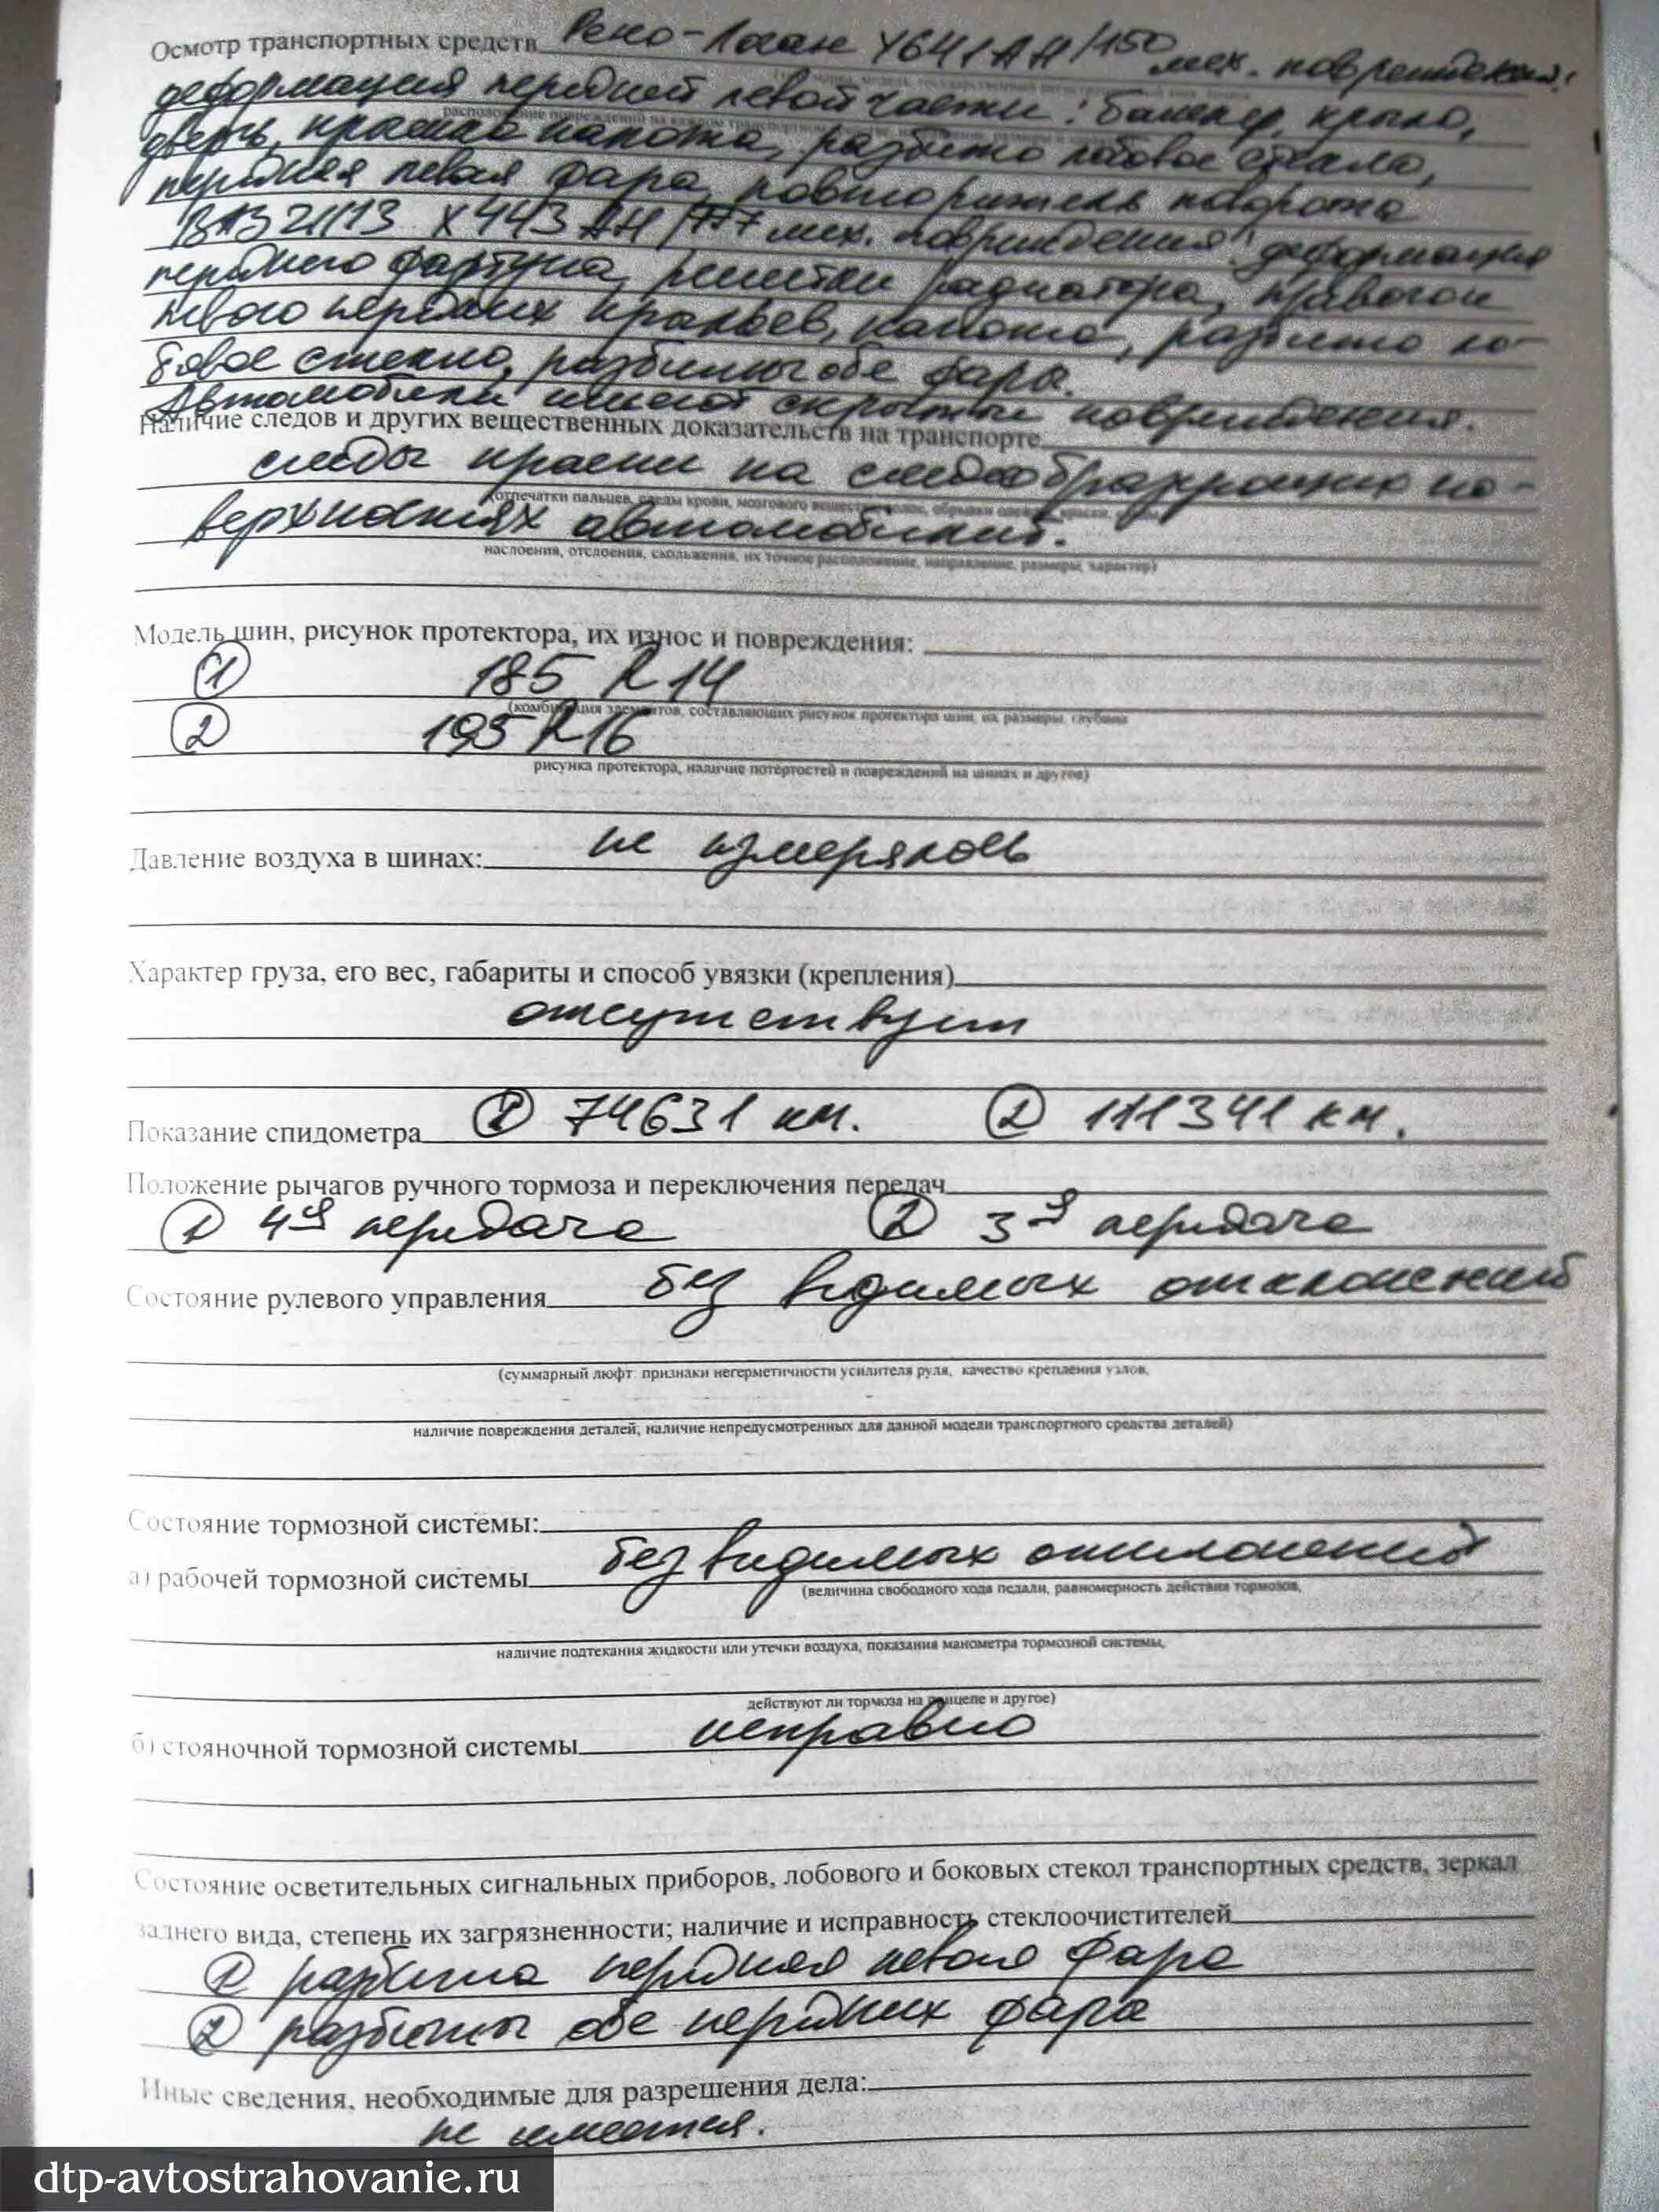 Осмотр транспортных средств Рено-Логан У641АН/150 мех. повреждения:
деформация передней левой части: бампер, крыло,
дверь, крышка капота, разбито лобовое стекло,
передняя левая фара, повторитель поворота
ВАЗ 21113 Х443АН/777 мех. повреждения: деформация
переднего фартука, решетки радиатора, правого и
левого передних крыльев, капота, разбито ло-
бовое стекло, разбиты обе фары.
Автомобили имеют скрытые повреждения.
Наличие следов и других вещественных доказательств на транспорте
следы краски на следообразующих по-
(отпечатки пальцев, следы крови, мозгового вещества,
верхностях автомобилей.
наслоения, отслоения, скольжения, их точное расположение, направление, размеры, характер)
Модель шин, рисунок протектора, их износ и повреждения:
1 185 R 14
(комбинация элементов, составляющих рисунок протектора шин, их размеры, глубина
2 195 R 16
рисунка протектора, наличие потёртостей и повреждений на шинах и другое)
Давление воздуха в шинах: не измерялось
Характер груза, его вес, габариты и способ увязки (крепления)
отсутствует
Показание спидометра 1 74631 км. 2 111341 км.
Положение рычагов ручного тормоза и переключения передач
1 4я передача 2 3я передача
Состояние рулевого управления без видимых отклонений
(суммарный люфт. признаки негерметичности усилителя руля, качество крепления узлов,
наличие повреждения деталей; наличие непредусмотренных для данной модели транспортного средства деталей)
Состояние тормозной системы:
а) рабочей тормозной системы без видимых отклонений
(величина свободного хода педали, равномерность действия тормозов,
наличие подтекания жидкости или утечки воздуха, показания манометра тормозной системы,
действуют ли тормоза на прицепе и другое)
б) стояночной тормозной системы исправно
Состояние осветительных сигнальных приборов, лобового и боковых стекол транспортных средств, зеркал
заднего вида, степень их загрязненности; наличие и исправность стеклоочистителей
1 разбита передняя левая фара
2 разбиты обе передних фара
Иные сведения, необходимые для разрешения дела:
не имеется.
dtp-avtostrahovanie.ru